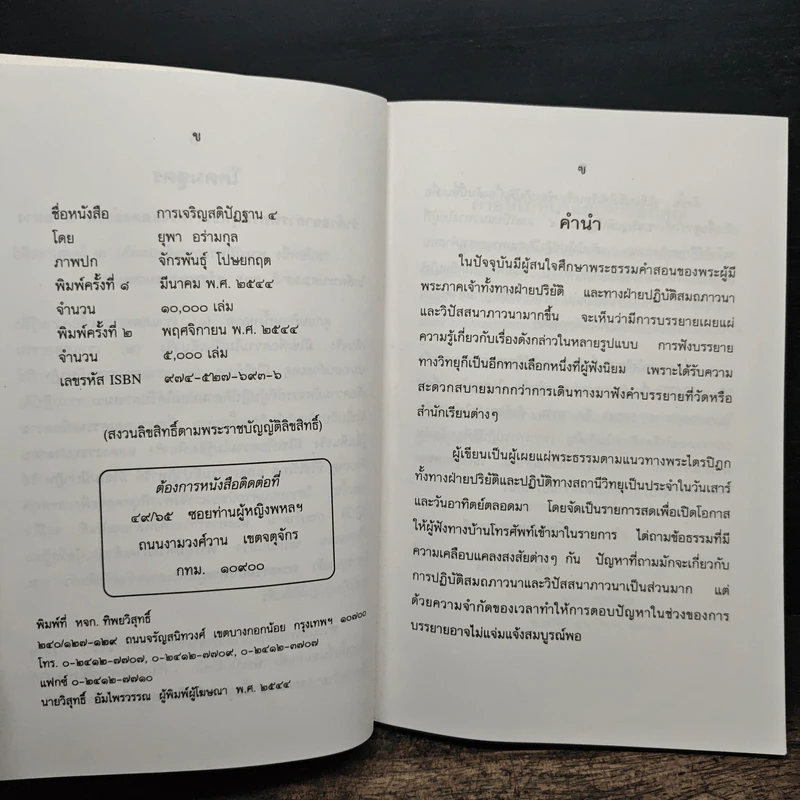 ข
ชื่อหนังสือ การเจริญสติปัฏฐาน ๔
โดย ยุพา อร่ามกุล
ภาพปก จักรพันธุ์ โปษยกฤต
พิมพ์ครั้งที่ ๑ มีนาคม พ.ศ. ๒๕๔๔
จำนวน ๑๐,๐๐๐ เล่ม
พิมพ์ครั้งที่ ๒ พฤศจิกายน พ.ศ. ๒๕๔๔
จำนวน ๕,๐๐๐ เล่ม
เลขรหัส ISBN ๙๗๔-๕๒๗-๖๙๓-๖
(สงวนลิขสิทธิ์ตามพระราชบัญญัติลิขสิทธิ์)
ต้องการหนังสือติดต่อที่
๔๙/๖๕ ซอยท่านผู้หญิงพหลฯ
ถนนงามวงศ์วาน เขตจตุจักร
กทม. ๑๐๙๐๐
พิมพ์ที่ หจก. ทิพยวิสุทธิ์
๒๔๐/๑๒๗-๑๒๙ ถนนจรัญสนิทวงศ์ เขตบางกอกน้อย กรุงเทพฯ ๑๐๗๐๐
โทร. ๐-๒๔๑๒-๗๗๐๗, ๐-๒๔๑๒-๗๗๐๙, ๐-๒๔๑๒-๓๗๐๗
แฟกซ์ ๐-๒๔๑๒-๗๗๑๐
นายวิสุทธิ์ อัมไพรวรรณ ผู้พิมพ์ผู้โฆษณา พ.ศ. ๒๕๔๔
ข
คำนำ
ในปัจจุบันมีผู้สนใจศึกษาพระธรรมคำสอนของพระผู้มี
พระภาคเจ้าทั้งทางฝ่ายปริยัติ และทางฝ่ายปฏิบัติสมถภาวนา
และวิปัสสนาภาวนามากขึ้น จะเห็นว่ามีการบรรยายเผยแผ่
ความรู้เกี่ยวกับเรื่องดังกล่าวในหลายรูปแบบ การฟังบรรยาย
ทางวิทยุก็เป็นอีกทางเลือกหนึ่งที่ผู้ฟังนิยม เพราะได้รับความ
สะดวกสบายมากกว่าการเดินทางมาฟังคำบรรยายที่วัดหรือ
สำนักเรียนต่างๆ
ผู้เขียนเป็นผู้เผยแผ่พระธรรมตามแนวทางพระไตรปิฎก
ทั้งทางฝ่ายปริยัติและปฏิบัติทางสถานีวิทยุเป็นประจำในวันเสาร์
และวันอาทิตย์ตลอดมา โดยจัดเป็นรายการสดเพื่อเปิดโอกาส
ให้ผู้ฟังทางบ้านโทรศัพท์เข้ามาในรายการ ไต่ถามข้อธรรมที่มี
ความเคลือบแคลงสงสัยต่างๆ กัน ปัญหาที่ถามมักจะเกี่ยวกับ
การปฏิบัติสมถภาวนาและวิปัสสนาภาวนาเป็นส่วนมาก แต่
ด้วยความจำกัดของเวลาทำให้การตอบปัญหาในช่วงของการ
บรรยายอาจไม่แจ่มแจ้งสมบูรณ์พอ